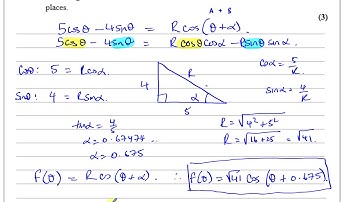 places.
(3)
A + B
5cosθ - 4sinθ = R cos(θ+α).
5cosθ - 4sinθ = R cosθ cosα - R sinθ sinα
cosθ: 5 = R cosα.
sinθ: 4 = R sinα.
4
R
α
5
cosα = 5/R
sinα = 4/R
tanα = 4/5
α = 0.67474...
α = 0.675
R = √4² + 5²
R = √16 + 25 = √41.
f(θ) = R cos(θ + α). ∴ f(θ) = √41 cos(θ + 0.675).